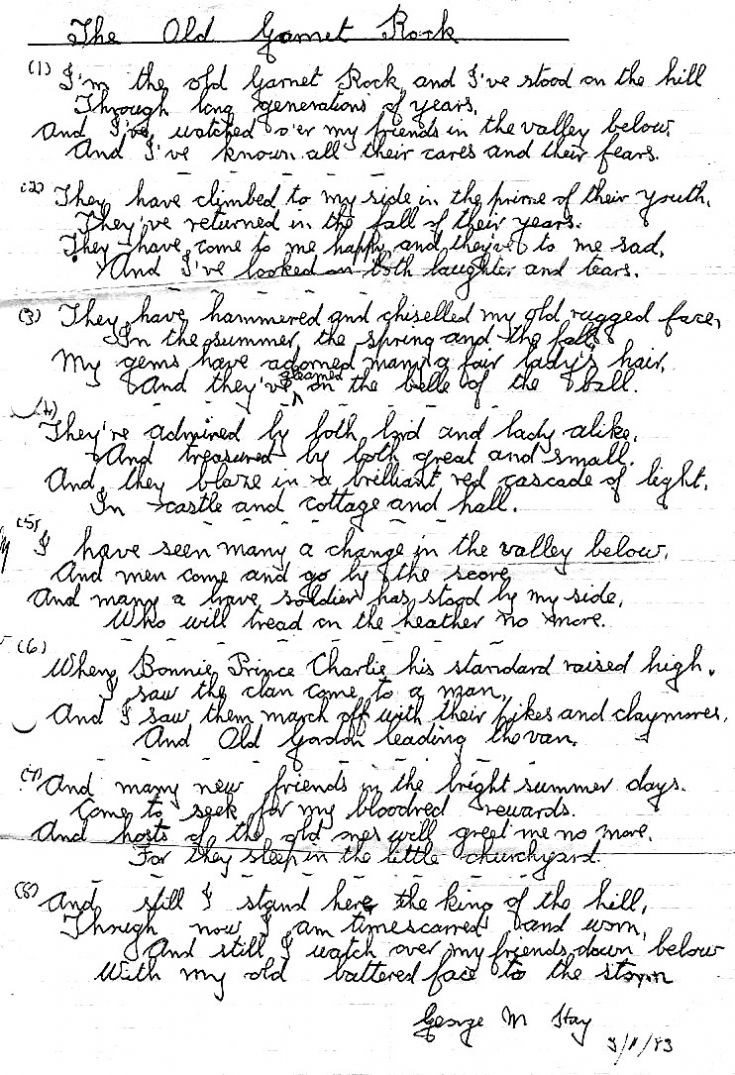 The Old Garnet Rock
(1) I'm the old Garnet Rock, and I've stood on the hill
Through long generations of years,
And I've, watched o'er my friends in the valley below.
And I've known all their cares and their fears.
(2) They have climbed to my side in the prime of their youth,
They've returned in the fall of their years.
They have come to me happy, and they've to me sad,
And I've looked on both laughter and tears.
(3) They have hammered and chiselled my old rugged face,
In the summer, the spring and the fall,
My gems have adorned many a fair lady's hair,
And they've gleamed on the belle of the ball.
(4)
They're admired by both lord and lady alike,
And treasured by both great and small.
And they blaze in a brilliant red cascade of light,
In castle and cottage and hall.
(5)
I have seen many a change in the valley below,
And men come and go by the score,
And many a brave soldier has stood by my side,
Who will tread on the heather no more.
(6)
When Bonnie Prince Charlie his standard raised high,
I saw the clan come to a man,
And I saw them march off with their pikes and claymores,
And Old Gordon leading the van.
(7) And many new friends in the bright summer days.
Come to seek for my bloodred rewards.
And hosts of the old ones will greet me no more,
For they sleep in the little churchyard.
(8) And still I stand here, the king of the hill,
Though now I am timescarred and worn,
And still I watch over my friends down below
With my old battered face to the storm
George M Stay